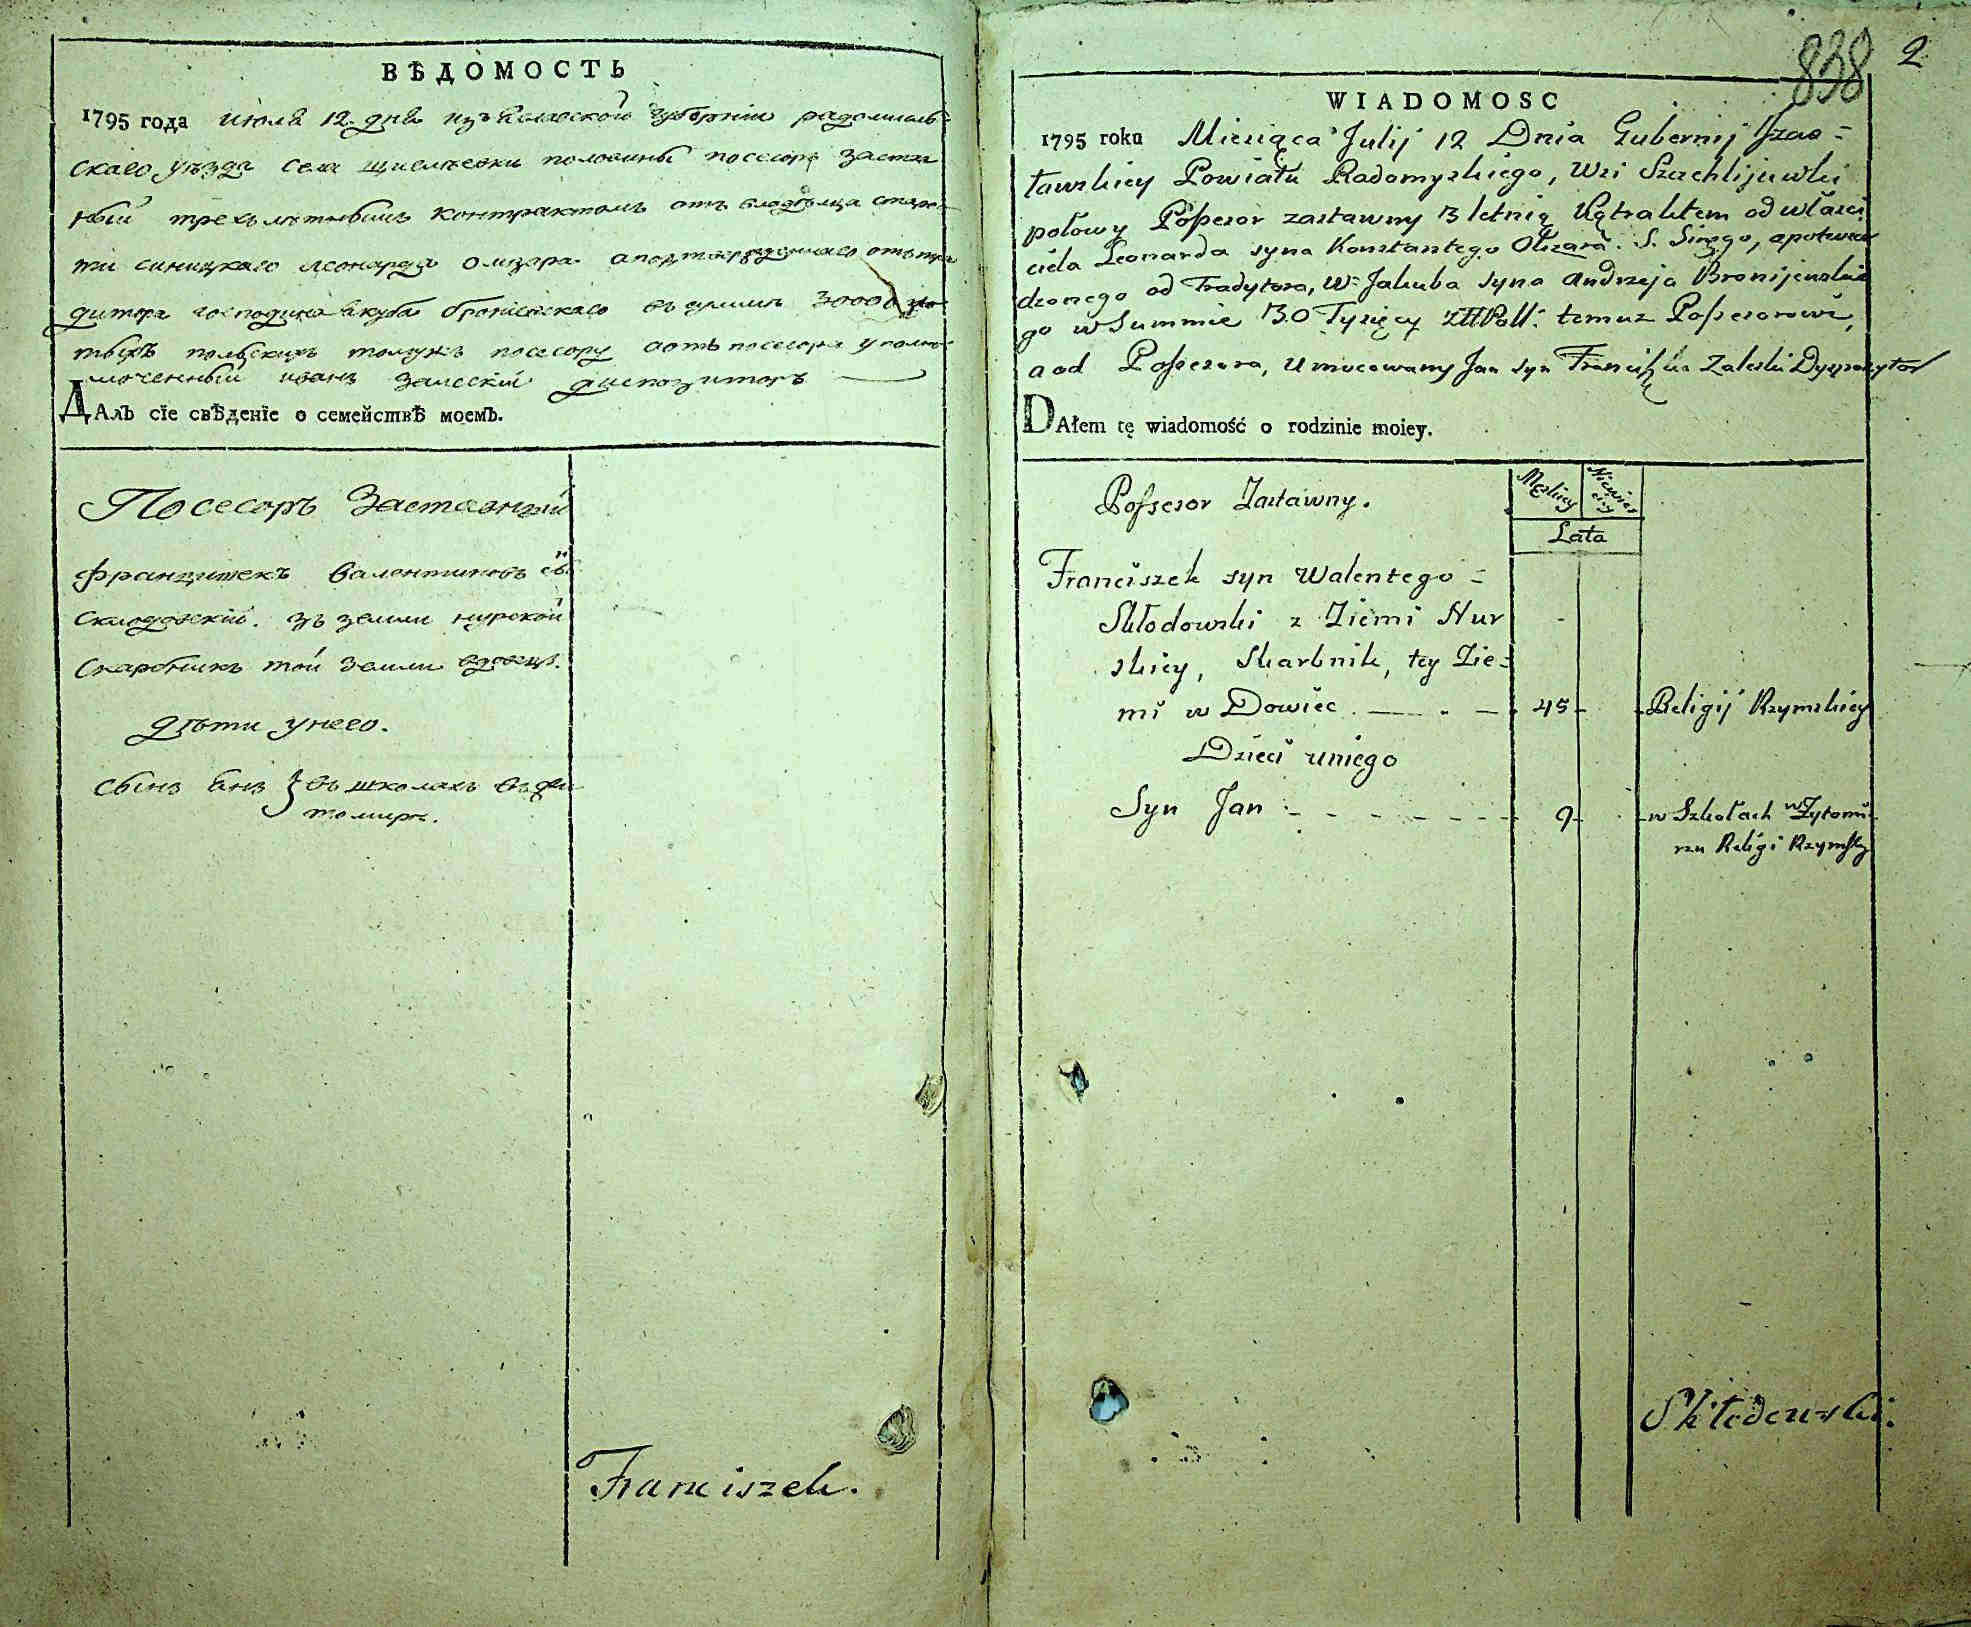 ВѢДОМОСТЬ
1795 года июля 12. дня изъяславской губернии радомысль-
скаго уѣзда села половины посесоръ застав
ный трехълѣтнымъ контрактомъ отъ владѣльца старо-
сти синицкаго леонарда олизара. а подтвержденнаго отъ тра
дитора господина якуба броніевскаго въ суммѣ 30000 зло-
тыхъ польскихъ томужъ посесору а отъ посесора уполно-
моченный иванъ залескій диспозиторъ
ДАлЪ сїе свѣденїе о семействѣ моемЪ.
Посесоръ Заставный
францишекъ валентиновъ снъ
Склодовскій. зъ земли нурской
Скарбникъ той земли вдовецъ.
дѣти унего.
сынъ янъ } въ школахъ въ жи
томирѣ.
Franciszek.
838 2
WIADOMOSC
1795 roku Miesiąca Julij 12 Dnia Gubernij Jzas=
ławskiey Powiatu Radomyskiego, Wsi Szachlijewki
połowy Possesor zastawny 3 letnią Kątraktem od właści
ciela Leonarda syna Konstantego Olizara. S. Sinego, a potwier
dzonego od Tradytora, W: Jakuba syna Andrzeja Bronijewskie
go w Summie 30 Tysięcy złł Poll: temuz Possesorowi,
a od Possesora, Umocowany Jan syn Franciszka Zaleski Dyspozytor
DAłem tę wiadomość o rodzinie moiey.
Possesor Zastawny.
Męskiey Niewieściey
Lata
Franciszek syn Walentego =
Skłodowski z Ziemi Nur
skiey, Skarbnik, tey Zie=
mi w Dowiec - 45 - Religij Rzymskiey
Dzieci uniego
Syn Jan - 9 - w Szkołach w Zytomi-
rzu Religi Rzymsky
Skłodowski.